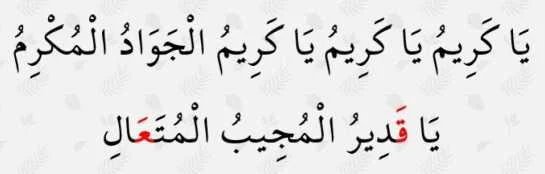 يَا كَرِيمُ يَا كَرِيمُ يَا كَرِيمُ الْجَوَادُ الْمُكْرِمُ
يَا قَدِيرُ الْمُجِيبُ الْمُتَعَالِ